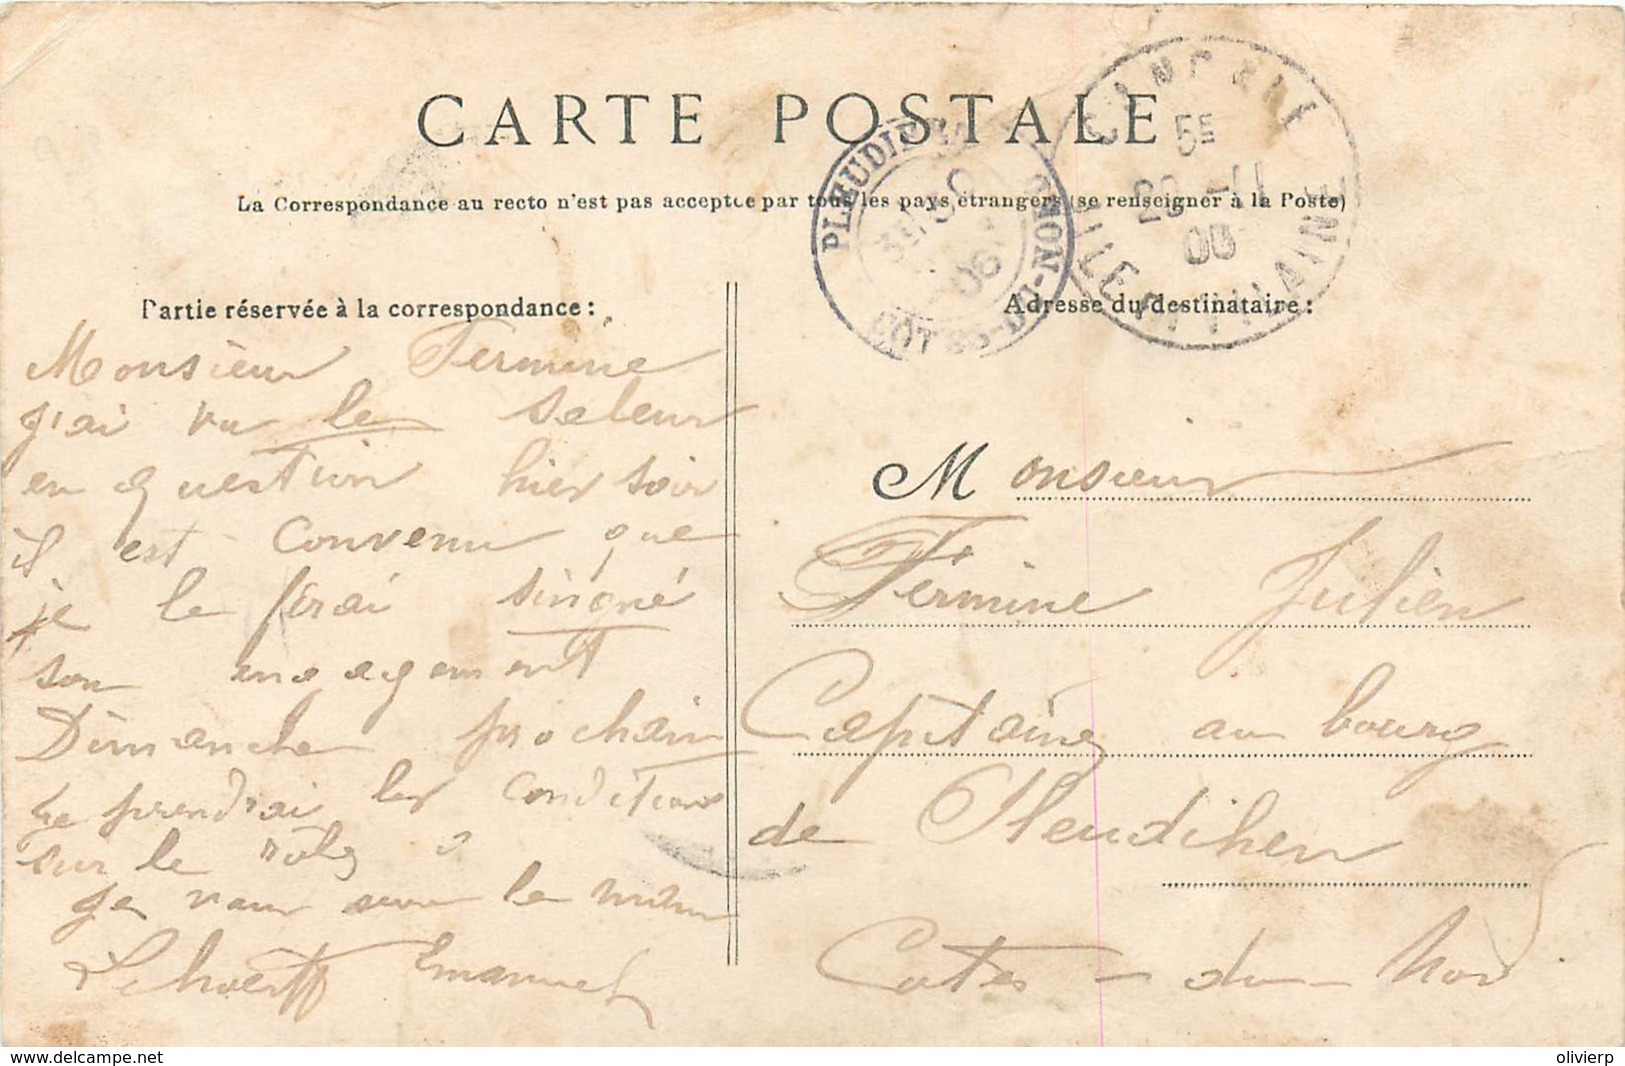 CARTE POSTALE
La Correspondance au recto n'est pas acceptée par tous les pays étrangers (se renseigner à la Poste)
PLEUDIHEN
30
06
COTES-DU-NORD
CANCALE
5E
20 -11
06
ILLE ET VILAINE
Partie réservée à la correspondance :
Monsieur Fermine
J'ai vu le saleur
en question hier soir
il est convenu que
je le ferai singné
son engagement
Dimanche prochain
je prendrai les conditions
sur le rôle
Je
Emanuel
Adresse du destinataire :
Monsieur
Férmine Julien
Capitaine au bourg
de Pleudihen
Cotes-du-Nord
www.delcampe.net
olivierp